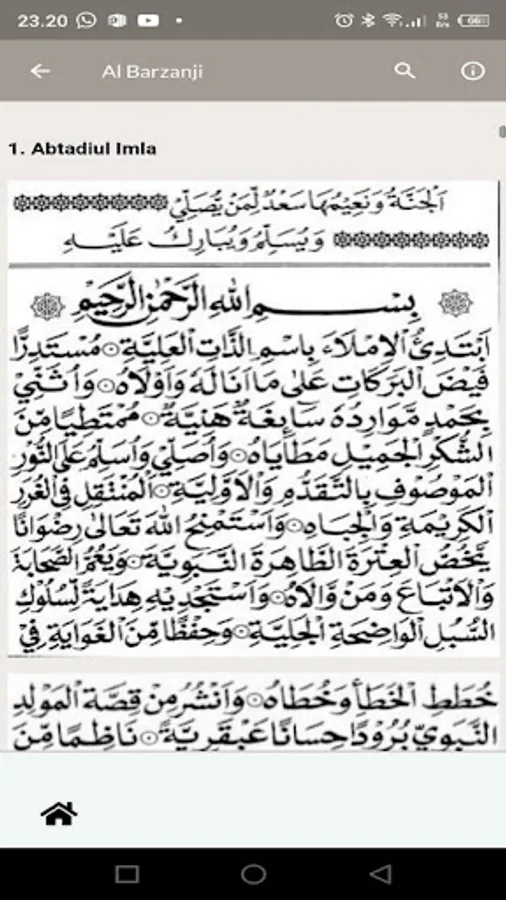 23.20
66
Al Barzanji
1. Abtadiul Imla
اَلْجَنَّةُ وَنَعِيْمُهَا سَعْدٌ لِّمَنْ يُّصَلِّيْ
وَيُسَلِّمُ وَيُبَارِكُ عَلَيْهِ
بِسْمِ اللهِ الرَّحْمٰنِ الرَّحِيْمِ
اَبْتَدِئُ الْاِمْلَاءَ بِاسْمِ الذَّاتِ الْعَلِيَّةِ۞مُسْتَدِرًّا
فَيْضَ الْبَرَكَاتِ عَلٰى مَا اَنَالَهُ وَاَوْلَاهُ۞وَاُثَنِّيْ
بِحَمْدٍ مَّوَارِدُهُ سَآئِغَةٌ هَنِيَّةٌ۞مُمْتَطِيًا مِنَ
الشُّكْرِ الْجَمِيْلِ مَطَايَاهُ۞وَاُصَلِّيْ وَاُسَلِّمُ عَلَى النُّوْرِ
الْمَوْصُوْفِ بِالتَّقَدُّمِ وَالْاَوَّلِيَّةِ۞اَلْمُنْتَقِلِ فِى الْغُرَرِ
الْكَرِيْمَةِ وَالْجِبَاهِ۞وَاَسْتَمْنِحُ اللهَ تَعَالٰى رِضْوَانًا
يَّخُصُّ الْعِتْرَةَ الطَّاهِرَةَ النَّبَوِيَّةَ۞وَيَعُمُّ الصَّحَابَةَ
وَالْاَتْبَاعَ وَمَنْ وَّالَاهُ۞وَاَسْتَجْدِيْهِ هِدَايَةً لِّسُلُوْكِ
السُّبُلِ الْوَاضِحَةِ الْجَلِيَّةِ۞وَحِفْظًا مِّنَ الْغَوَايَةِ فِيْ
خُطَطِ الْخَطَأِ وَخُطَاهُ۞وَاَنْشُرُ مِنْ قِصَّةِ الْمَوْلِدِ
النَّبَوِيِّ بُرُوْدًا حِسَانًا عَبْقَرِيَّةً۞نَاظِمًا مِّنَ